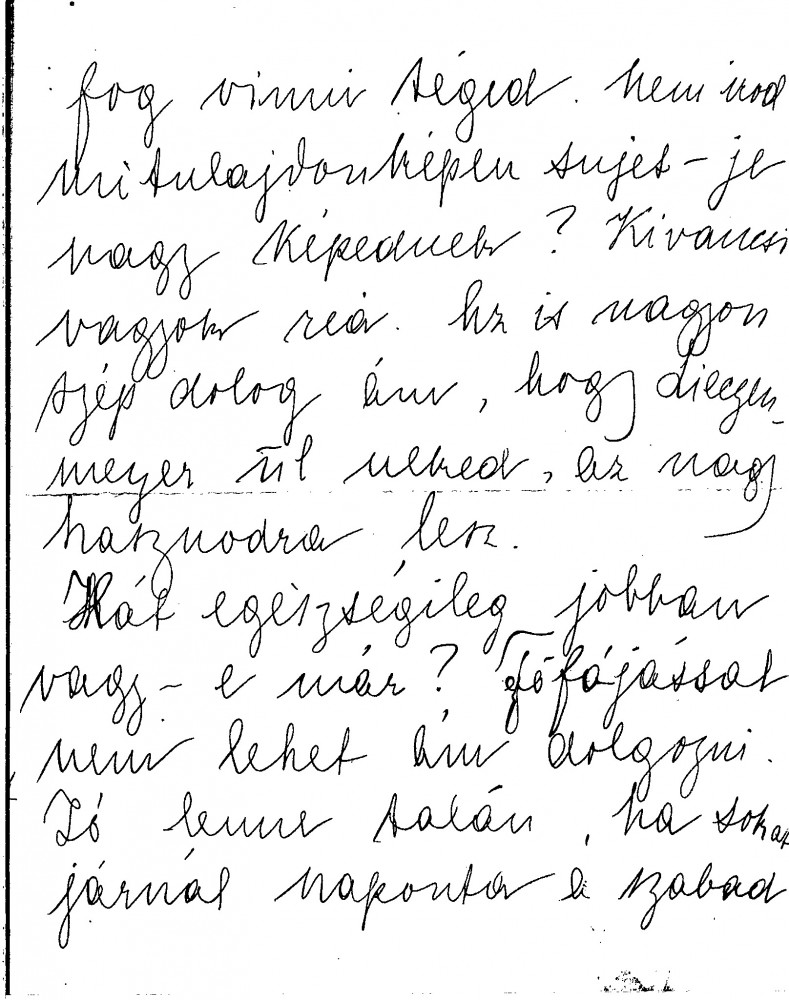 fog vinni téged. Nem irod
mi tulajdonképen sujet-je
nagy képednek? Kiváncsi
vagyok reá. Az is nagyon
szép dolog ám, hogy Dieczen-
meyer ül neked, az nagy
hasznodra lesz.
Hát egészségileg jobban
vagy-e már? Főfájással
nem lehet ám dolgozni.
Jó lenne talán, ha sokat
járnál naponta a szabad